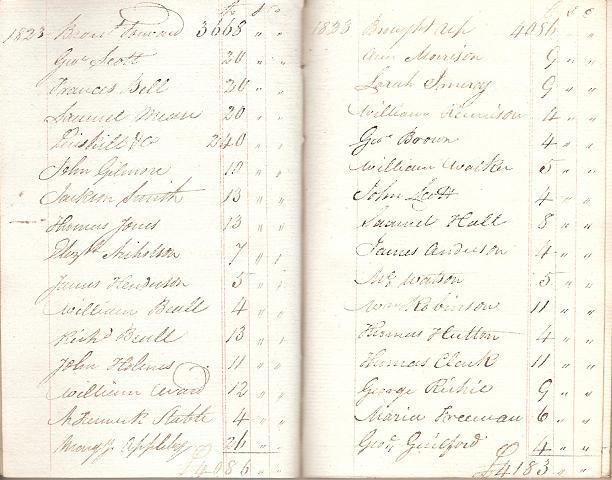 £ s d
1823 Brow.t Forward 3668 " "
Geo. Scott 20 " "
Frances Bell 20 " "
Samuel Mean 20 " "
& Co 240 " "
John Gilmore 10 " "
Jackson Smith 13 " "
Thomas Jones 13 " "
Nicholson 7 " "
James Henderson 5 " "
William Beall 4 " "
Rich.d Beall 13 " "
John Holmes 11 " "
William Ward 12 " "
Stable 4 " "
Appleby 26 " "
£4086 " "
£ s d
1823 Brought up 4086 " "
Ann Morrison 9 " "
Sarah 9 " "
William Kennison 4 " "
Geo. Brown 4 " "
William Walker 5 " "
John Scott 4 " "
Samuel Hall 8 " "
James Anderson 4 " "
Mr Watson 5 " "
Wm Robinson 11 " "
Thomas Hutton 4 " "
Thomas Clark 11 " "
George Richie 9 " "
Maria Freeman 6 " "
Geo. Guilford 4 " "
£4183 " "